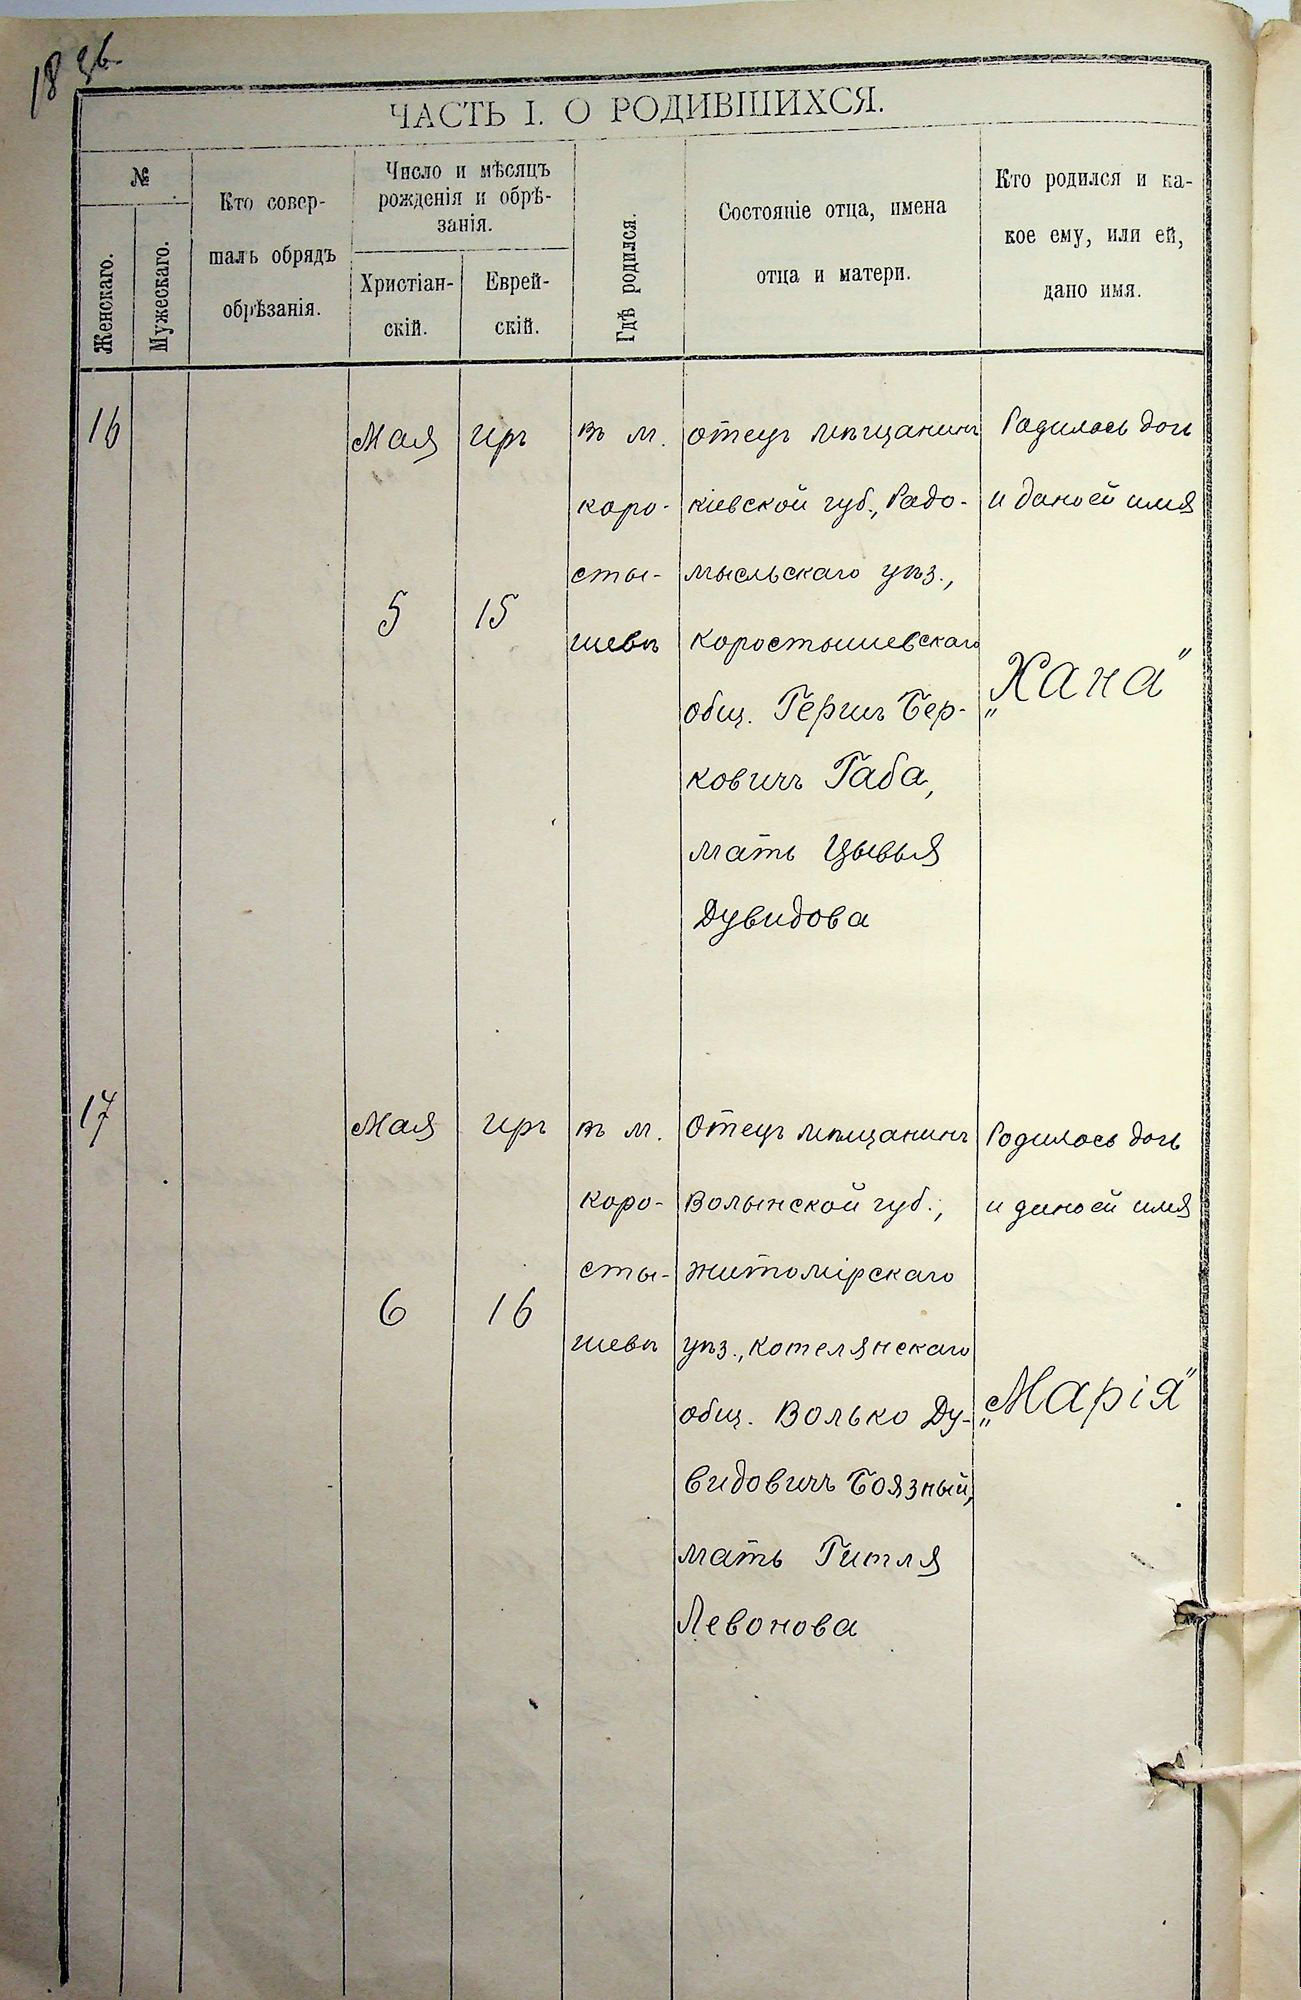 18 зв.
ЧАСТЬ I. О РОДИВШИХСЯ.
№
Женскаго.
Мужескаго.
Кто совер-
шалъ обрядъ
обрѣзанія.
Число и мѣсяцъ
рожденія и обрѣ-
занія.
Христіан-
скій.
Еврей-
скій.
Гдѣ родился.
Состояніе отца, имена
отца и матери.
Кто родился и ка-
кое ему, или ей,
дано имя.
16
Мая
5
Иръ
15
въ м.
Коро-
сты-
шевъ
отецъ мѣщанинъ
Кіевской губ., Радо-
мысльскаго уѣз.,
Коростышевскаго
общ. Гершъ Бер-
ковичъ Габа,
мать Цывья
Дувидова
Родилась дочь
и дано ей имя
„Хана"
17
Мая
6
Иръ
16
въ м.
Коро-
сты-
шевѣ
Отецъ мѣщанинъ
Волынской губ.,
Житомірскаго
уѣз., Котелянскаго
общ. Волько Ду-
видовичъ Боязный,
мать Гитля
Левонова
Родилась дочь
и дано ей имя
„Марія"